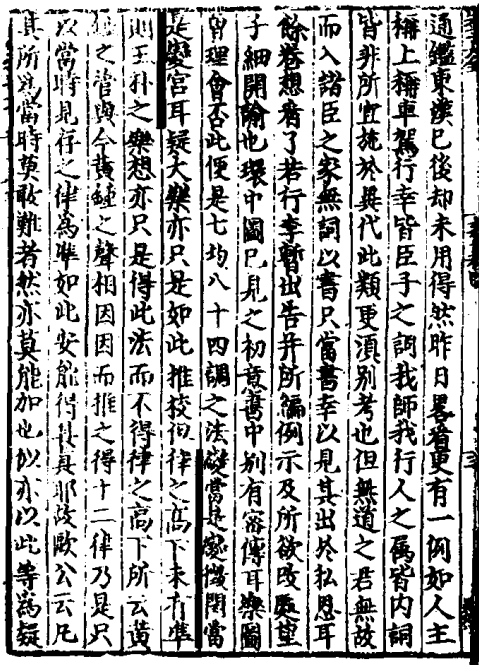 通鑑東漢已後却未用得然昨日畧看更有一例如人主
稱上稱車駕行幸皆臣子之詞我師我行人之屬皆内詞
皆非所宜施於異代此類更湏别考也但無道之君無故
而入諸臣之家無詞以書只當書幸以見其出於私恩耳
餘卷想看了若行李暫出告并所編例示及所欲改處望
子細開諭也環中圖已見之初意書中别有密傳耳樂圖
曽理會否此便是七均八十四調之法礙當是變機閑當
是變宫耳疑大樂亦只是如此推挍但律之髙下未有準
則王朴之樂想亦只是得此法而不得律之高下所云黄
鍾之管與今黄鍾之聲相因因而推之得十二律乃是只
以當時見存之律為準如此安能得其真耶故歐公云凡
其所為當時莫敢難者然亦莫能加也似亦以此等為疑